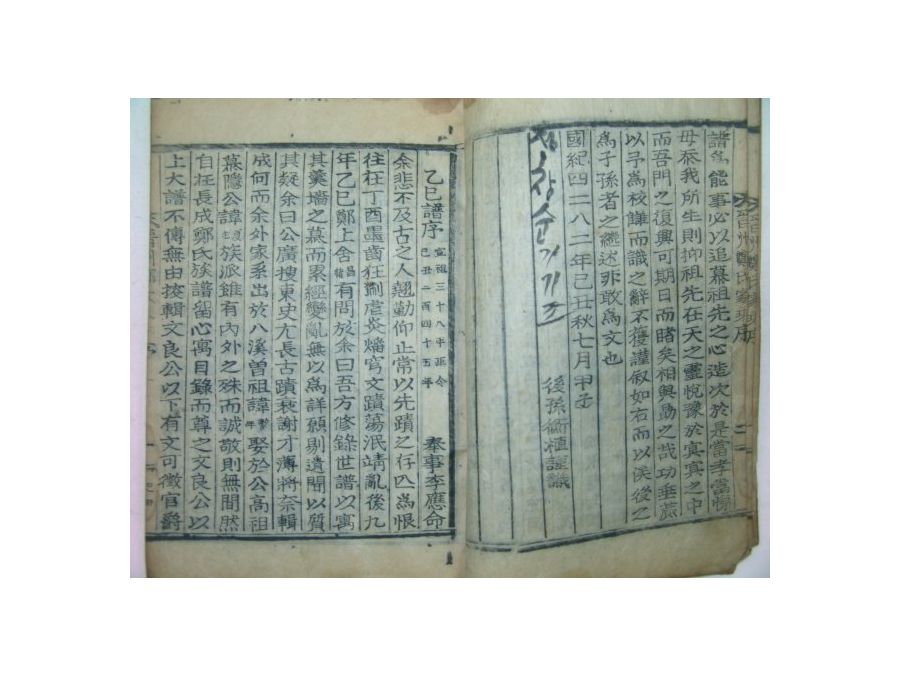 譜爲能事必以追慕祖先之心造次於是當孝當悌
毋忝我所生則抑祖先在天之靈悅豫於冥冥之中
而吾門之復興可期日而睹矣相與勖之哉功垂
以予爲校讎而識之辭不獲謹叙如右而以俟後之
爲子孫者之繼述非敢爲文也
國紀四二八二年己丑秋七月甲子
後孫 植謹識
乙巳譜序
宣祖三十八年距今
己丑二百四十五年
奉事李應命
余悲不及古之人翹勤仰止常以先蹟之存亡爲恨
往在丁酉墨齒狂 虐炎爚穹文蹟蕩泯靖亂後九
年乙巳鄭上舍 有問於余曰吾方修錄世譜以寓
其羹墻之慕而累經變亂無以爲詳願剔遺聞以質
其疑余曰公廣搜東史亢長古蹟裒謝才薄將奈輯
成何而余外家系出於八溪曾祖諱 娶於公高祖
慕隱公諱 族派雖有內外之殊而誠敬則無間然
自在長成鄭氏族譜留心寓目錄而尊之文良公以
上大譜不傳無由按輯文良公以下有文可徵官爵